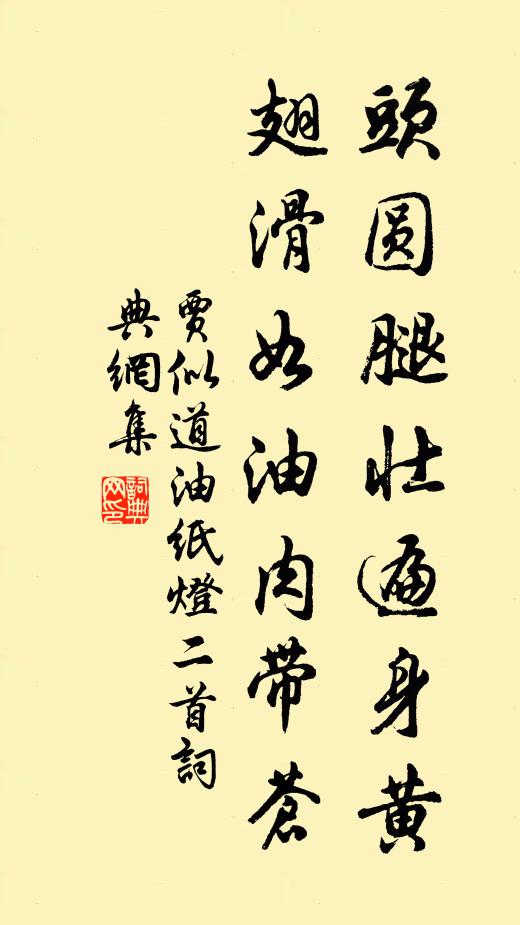 頭圓腿壯遍身黃
翅滑如油肉帶蒼
賈似道油紙燈二首詞
典網集
詞典
网印